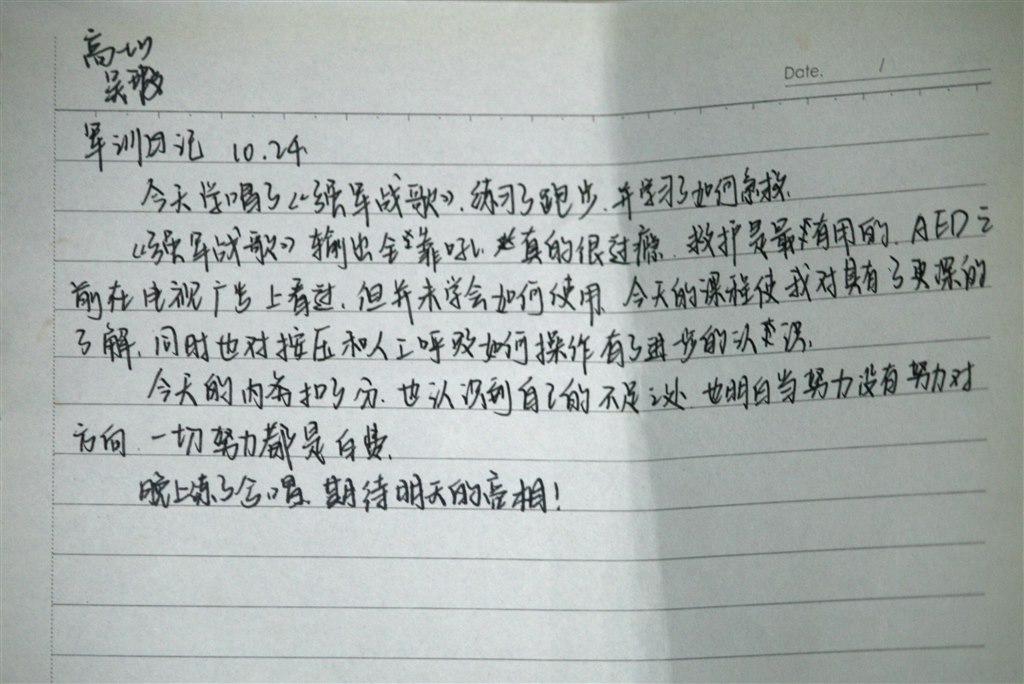 高一(1)
吴
Date. /
军训日记 10.24
今天学唱了《强军战歌》.练习了跑步.并学习了如何急救.
《强军战歌》输出全靠吼.真的很过瘾.救护是最有用的.AED之
前在电视广告上看过.但并未学会如何使用.今天的课程使我对其有了更深的
了解.同时也对按压和人工呼吸如何操作有了进步的认识.
今天的内务扣了分.也认识到自己的不足之处.也明白当努力没有努力对
方向.一切努力都是白费.
晚上练了合唱.期待明天的亮相!